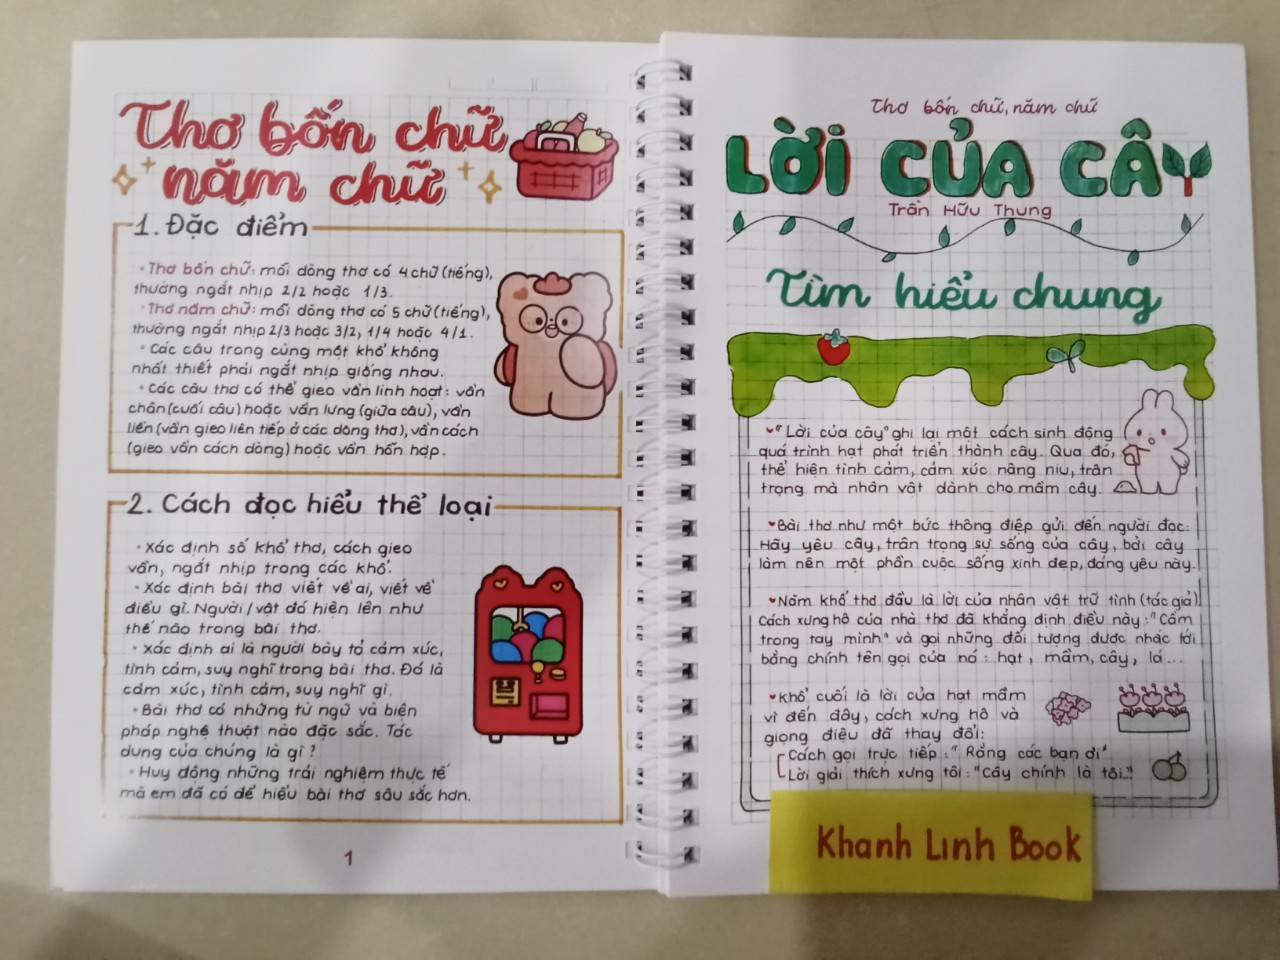 Thơ bốn chữ
năm chữ
1. Đặc điểm
• Thơ bốn chữ: mỗi dòng thơ có 4 chữ (tiếng),
thường ngắt nhịp 2/2 hoặc 1/3.
• Thơ năm chữ: mỗi dòng thơ có 5 chữ (tiếng),
thường ngắt nhịp 2/3 hoặc 3/2, 1/4 hoặc 4/1.
• Các câu trong cùng một khổ không
nhất thiết phải ngắt nhịp giống nhau.
• Các câu thơ có thể gieo vần linh hoạt: vần
chân (cuối câu) hoặc vần lưng (giữa câu), vần
liền (vần gieo liên tiếp ở các dòng thơ), vần cách
(gieo vần cách dòng) hoặc vần hỗn hợp.
2. Cách đọc hiểu thể loại
• Xác định số khổ thơ, cách gieo
vần, ngắt nhịp trong các khổ.
• Xác định bài thơ viết về ai, viết về
điều gì. Người/vật đó hiện lên như
thế nào trong bài thơ.
• Xác định ai là người bày tỏ cảm xúc,
tình cảm, suy nghĩ trong bài thơ. Đó là
cảm xúc, tình cảm, suy nghĩ gì.
• Bài thơ có những từ ngữ và biện
pháp nghệ thuật nào đặc sắc. Tác
dụng của chúng là gì?
• Huy động những trải nghiệm thực tế
mà em đã có để hiểu bài thơ sâu sắc hơn.
1
Thơ bốn chữ, năm chữ
LỜI CỦA CÂY
Trần Hữu Thung
Tìm hiểu chung
"Lời của cây" ghi lại một cách sinh động
quá trình hạt phát triển thành cây. Qua đó,
thể hiện tình cảm, cảm xúc nâng niu, trân
trọng mà nhân vật dành cho mầm cây.
Bài thơ như một bức thông điệp gửi đến người đọc:
Hãy yêu cây, trân trọng sự sống của cây, bởi cây
làm nên một phần cuộc sống xinh đẹp, đáng yêu này.
Năm khổ thơ đầu là lời của nhân vật trữ tình (tác giả)
Cách xưng hô của nhà thơ đã khẳng định điều này: "Cầm
trong tay mình" và gọi những đối tượng được nhắc tới
bằng chính tên gọi của nó: hạt, mầm, cây, lá...
Khổ cuối là lời của hạt mầm
vì đến đây, cách xưng hô và
giọng điệu đã thay đổi:
Cách gọi trực tiếp: "Rằng các bạn ơi"
Lời giải thích xưng tôi: "Cây chính là tôi."
Khanh Linh Book